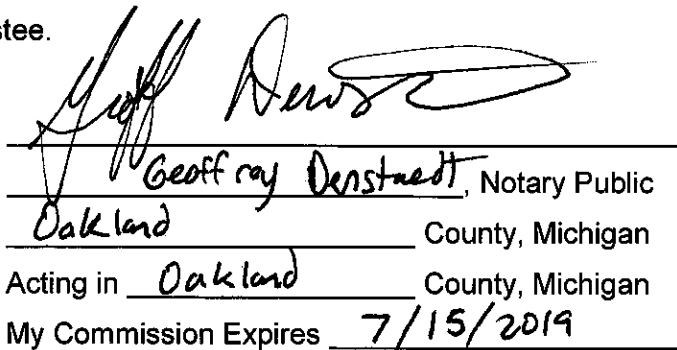 stee.
Geoff Denst
Geoffrey Denstaedt, Notary Public
Oakland County, Michigan
Acting in Oakland County, Michigan
My Commission Expires 7/15/2019